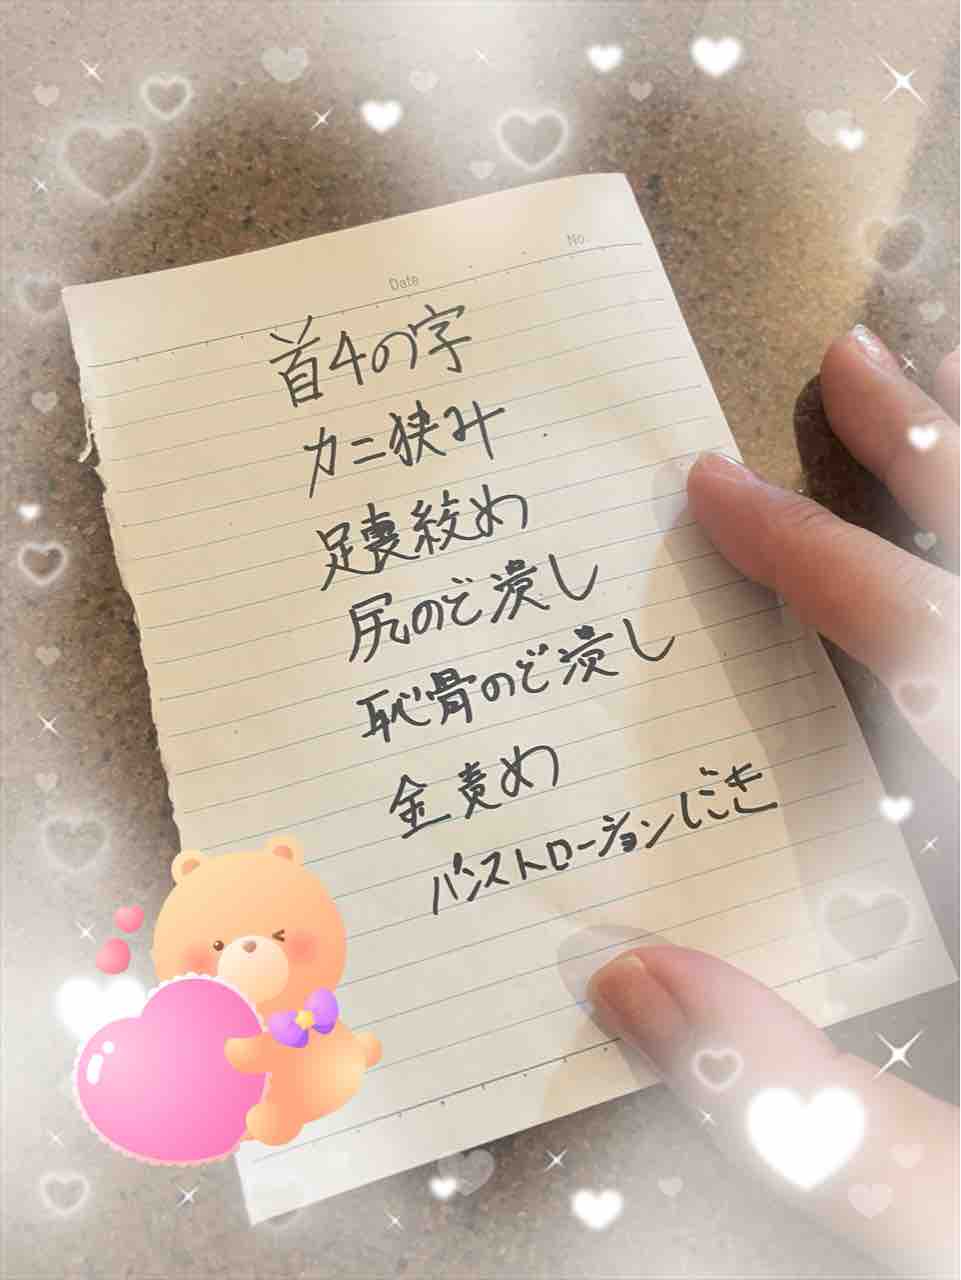 Date
No.
首4の字
カニ狭み
足裏絞め
尻のど潰し
恥骨のど潰し
金責め
パンストローションしごき